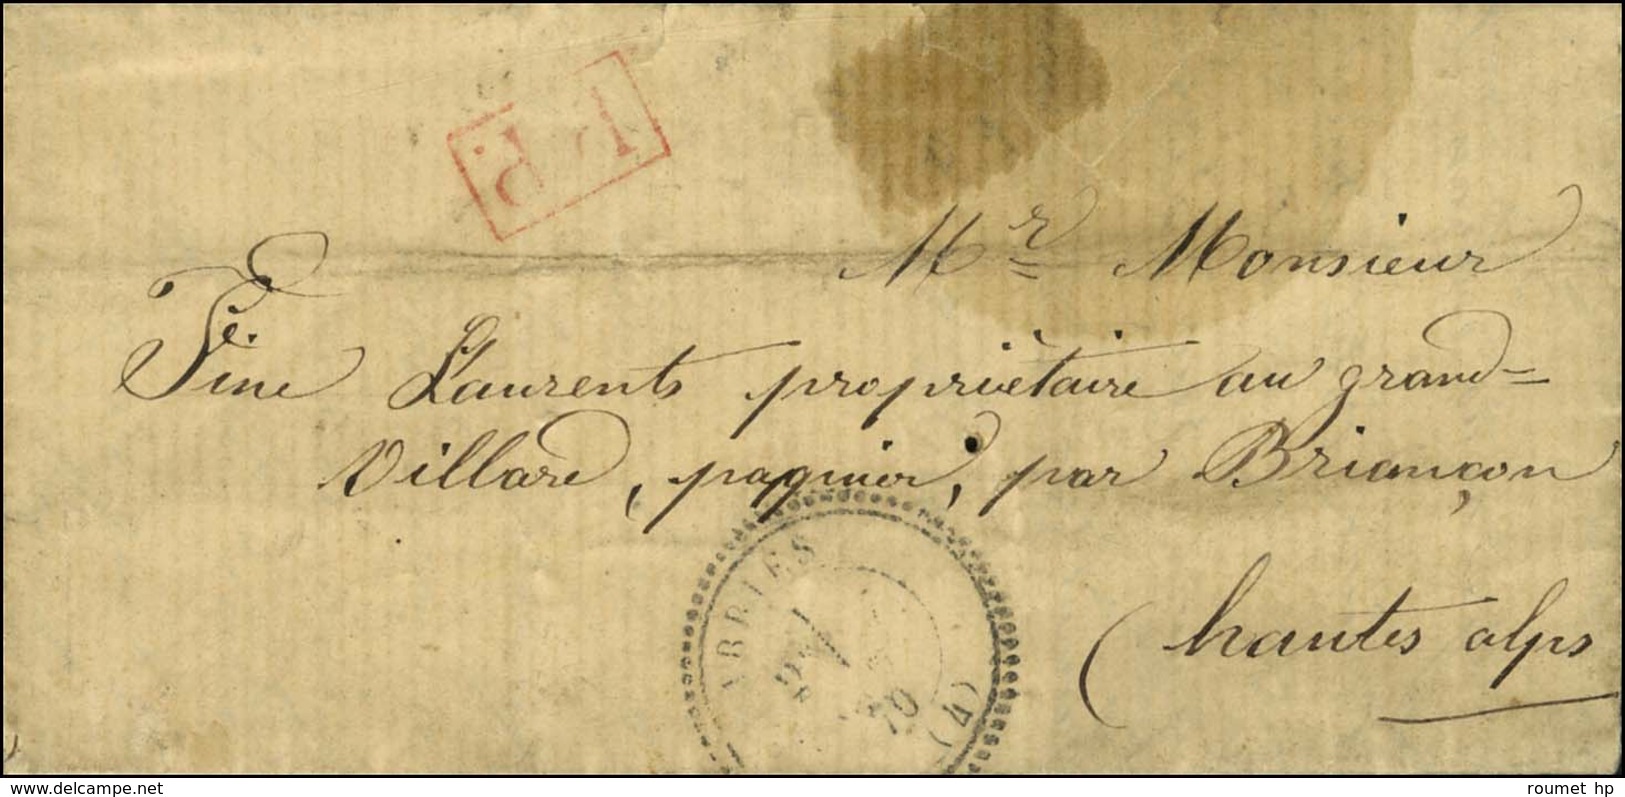 P.P.
Mr Monsieur
Fine Laurents propriètaire au grand=
Villard, pagnier, par Briançon
(hautes alps
ABRIES
70
(4)
www.delcampe.net
roumet hp